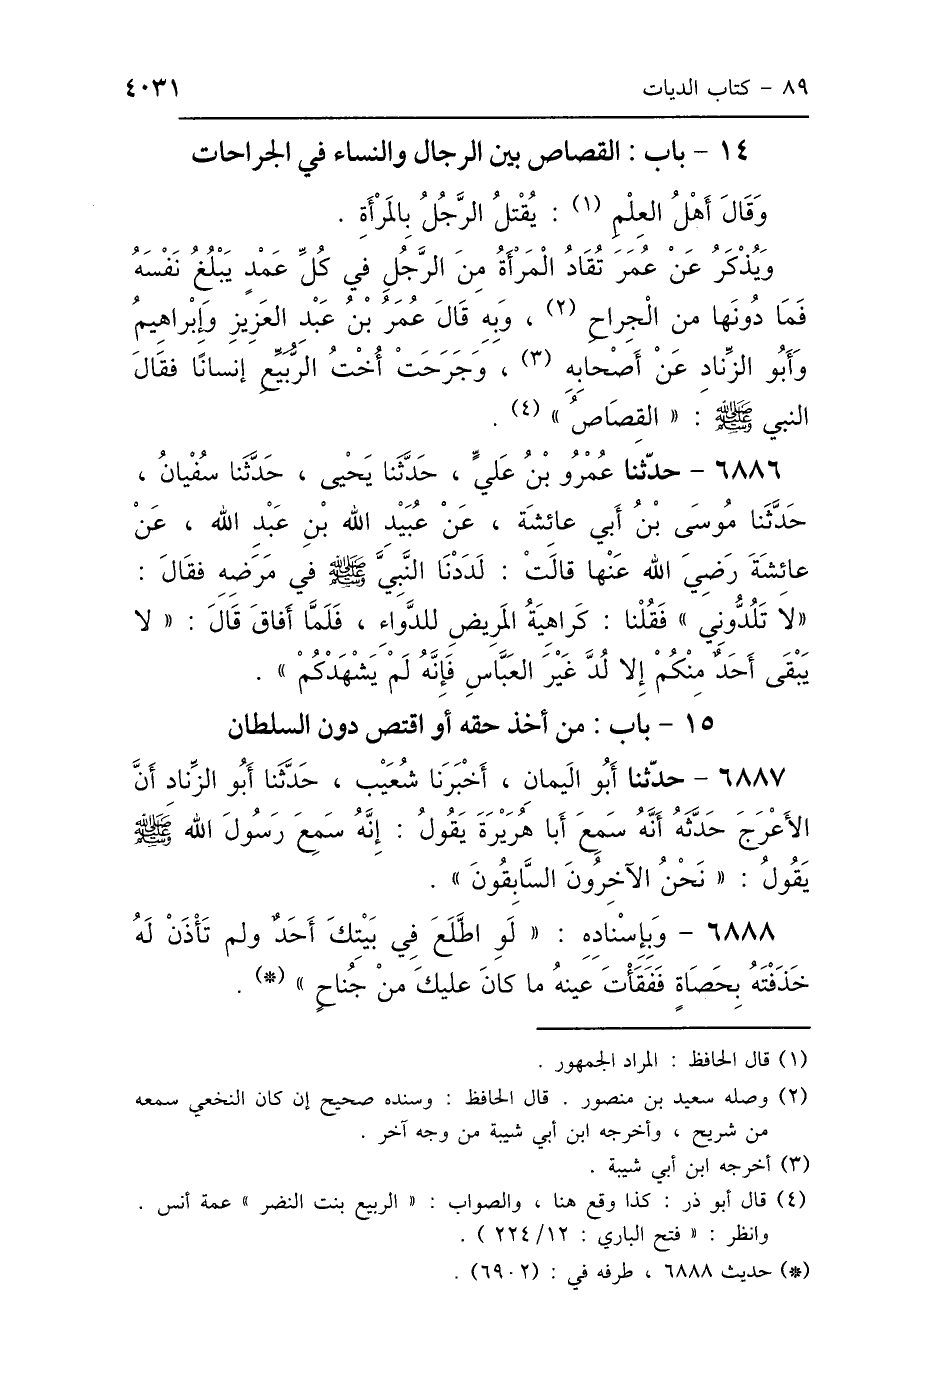 ٨٩ - كتاب الديات ٤٠٣١
١٤ - باب : القصاص بين الرجال والنساء في الجراحات
وَقَالَ أَهْلُ العِلْمِ (١) : يُقْتلُ الرَّجُلُ بِالمَرْأَةِ .
وَيُذْكَرُ عَنْ عُمَرَ تُقَادُ الْمَرْأَةُ مِنَ الرَّجُلِ في كُلِّ عَمْدٍ يَبْلُغُ نَفْسَهُ
فَمَا دُونَها من الْجِراحِ (٢) ، وَبِهِ قَالَ عُمَرُ بْنُ عَبْدِ العَزِيزِ وَإِبْراهيمُ
وَأَبُو الزِّنادِ عَنْ أَصْحابِهِ (٣) ، وَجَرَحَتْ أُخْتُ الرُّبَيِّعِ إنسانًا فقَالَ
النبي ﷺ : « القِصَاصُ » (٤) .
٦٨٨٦ - حدّثنا عُمْرُو بْنُ عَليٍّ ، حَدَّثَنا يَحْيى ، حَدَّثَنا سُفْيانُ ،
حَدَّثَنا مُوسَى بْنُ أَبي عائشَة ، عَنْ عُبَيْدِ الله بْنِ عَبْدِ الله ، عَنْ
عائشَةَ رَضِيَ الله عَنْها قالَتْ : لَدَدْنَا النَّبِيَّ ﷺ في مَرَضِهِ فقَالَ :
«لا تَلُدُّونِي » فَقُلْنا : كَراهِيَةُ المَرِيضِ للدَّواءِ ، فَلَمَّا أَفاقَ قَالَ : « لا
يَبْقَى أَحَدٌ مِنْكُمْ إلا لُدَّ غَيْرَ العَبَّاسِ فَإِنَّهُ لَمْ يَشْهَدْكُمْ » .
١٥ - باب : من أخذ حقه أو اقتص دون السلطان
٦٨٨٧ - حدّثنا أَبُو اليَمانِ ، أَخْبَرَنا شُعَيْب ، حَدَّثَنا أَبو الزِّناد أَنَّ
الأَعْرَجَ حَدَّثَهُ أَنَّهُ سَمِعَ أَبا هُرَيْرَةَ يَقُولُ : إِنَّهُ سَمِعَ رَسُولَ الله ﷺ
يَقُولُ : « نَحْنُ الآخِرُونَ السَّابِقُونَ » .
٦٨٨٨ - وَبِإِسْنادِهِ : « لَو اطَّلَعَ فِي بَيْتِكَ أَحَدٌ ولم تَأْذَنْ لَهُ
خَذَفْتَهُ بِحَصَاةٍ فَفَقَأْتَ عينهُ ما كانَ عليكَ منْ جُناحٍ » (*) .
(١) قال الحافظ : المراد الجمهور .
(٢) وصله سعيد بن منصور . قال الحافظ : وسنده صحيح إن كان النخعي سمعه
من شريح ، وأخرجه ابن أبي شيبة من وجه آخر .
(٣) أخرجه ابن أبي شيبة .
(٤) قال أبو ذر : كذا وقع هنا ، والصواب : « الربيع بنت النضر » عمة أنس .
وانظر : « فتح الباري : ١٢/ ٢٢٤ ) .
(*) حديث ٦٨٨٨ ، طرفه في : (٦٩٠٢) .